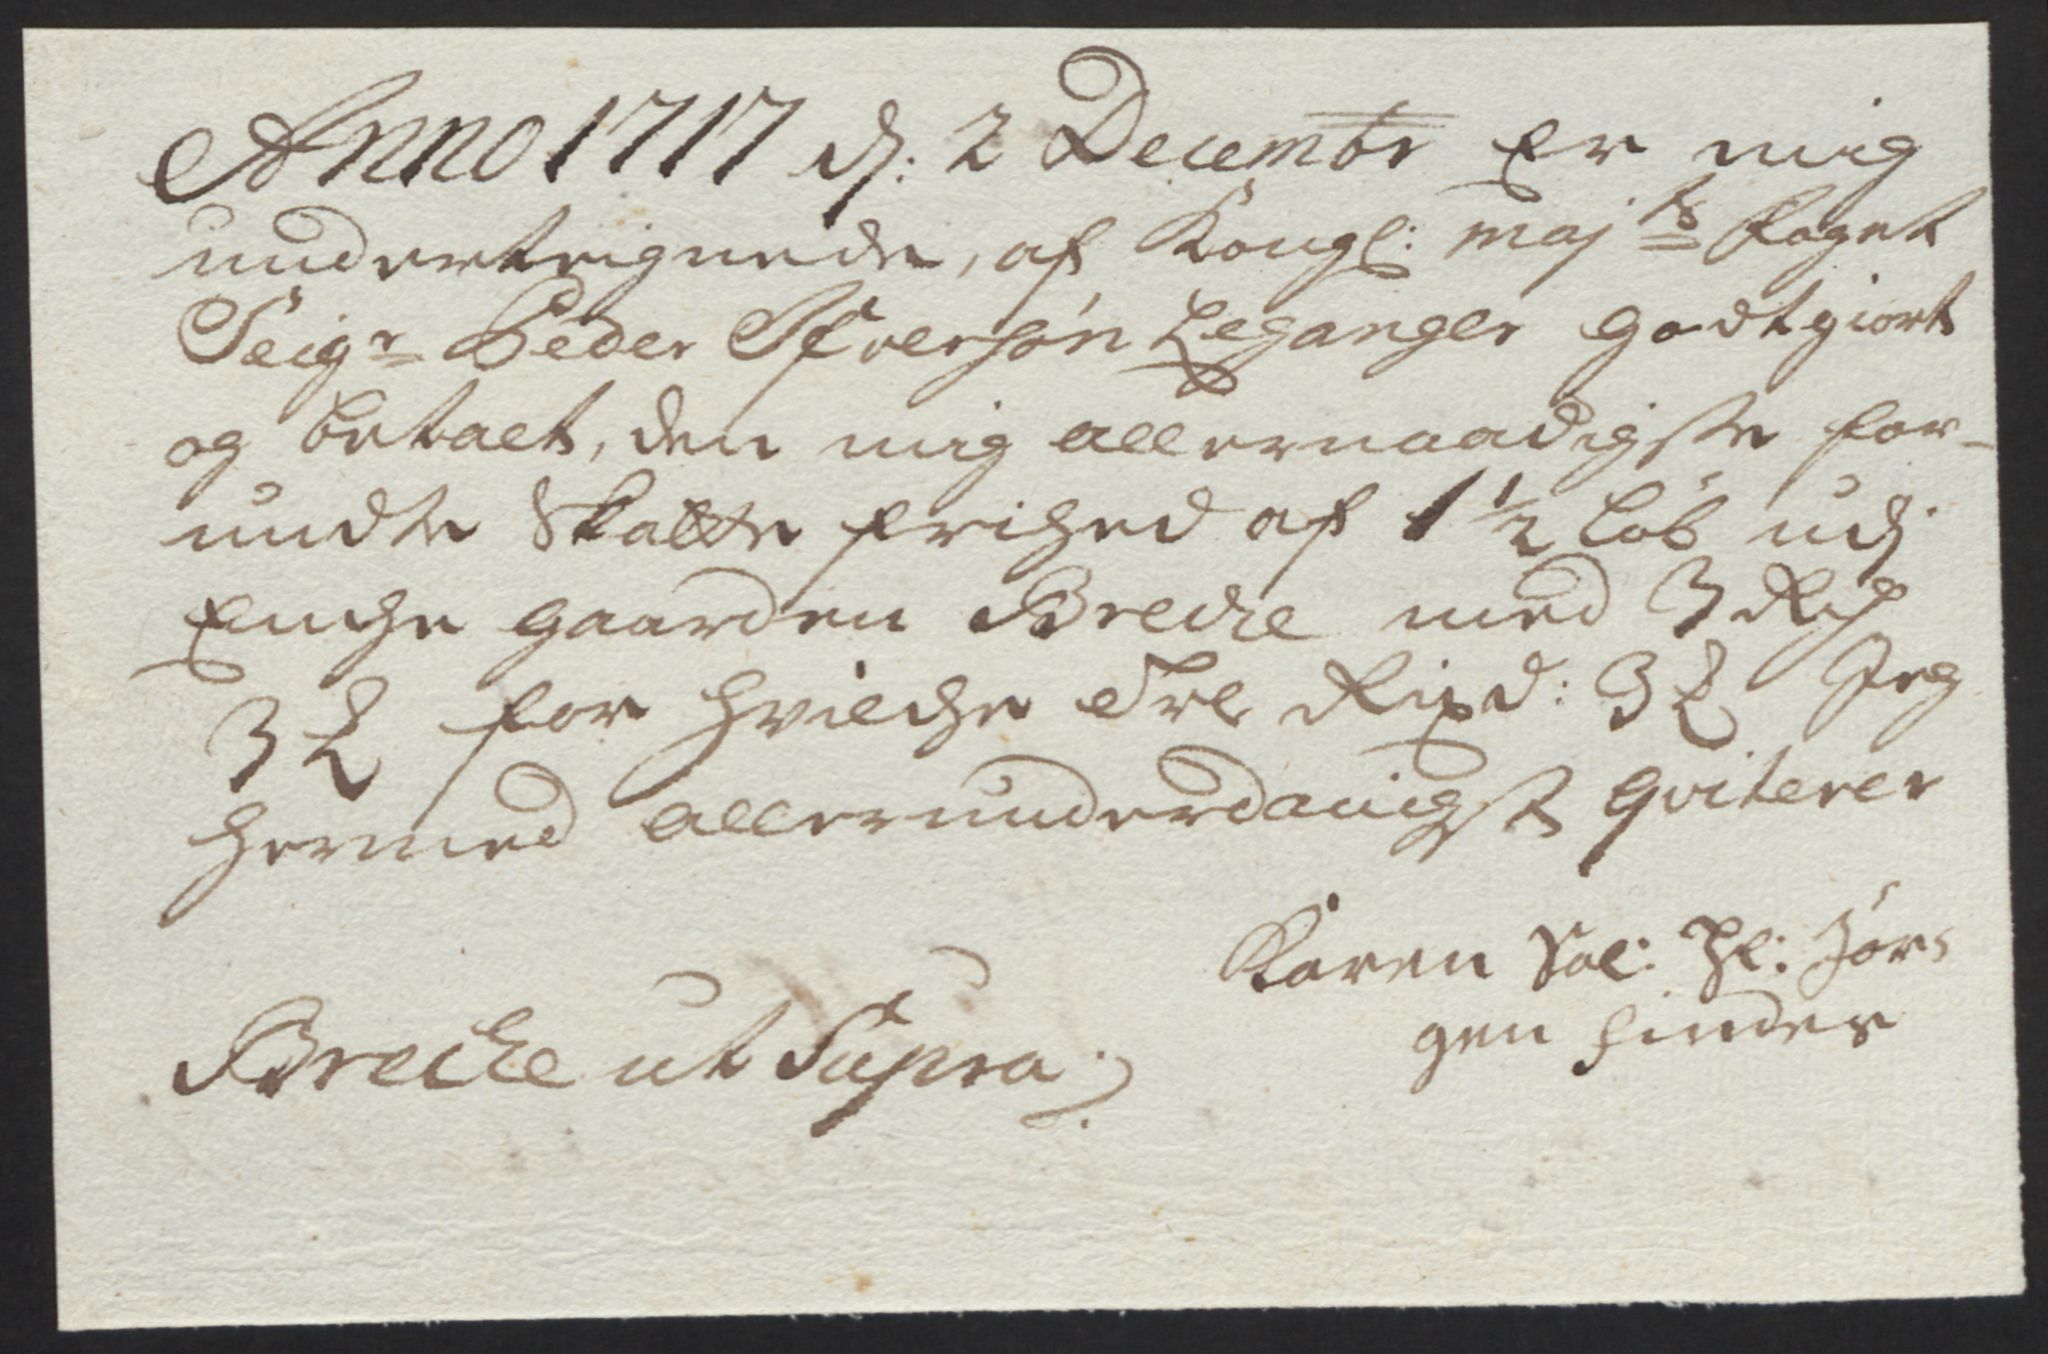 Anno 1717 d: 2 Decembr er mig
underteignede, af Kongl: maj ts foget
Seigr Peder Ifversøn Leganger godtgiort
og betalt, den mig allernaadigste for-
undte Skatte frihed af 1 1/2 løb udj
Enche gaarden Brecke med 3 Rdr
3 ß for hvilche Tre Rixd: 3 ß Jeg
hermed allerunderdanigst Qviterer
Karen Sal: Hl: Jør-
gen findes
Brecke ut Supra